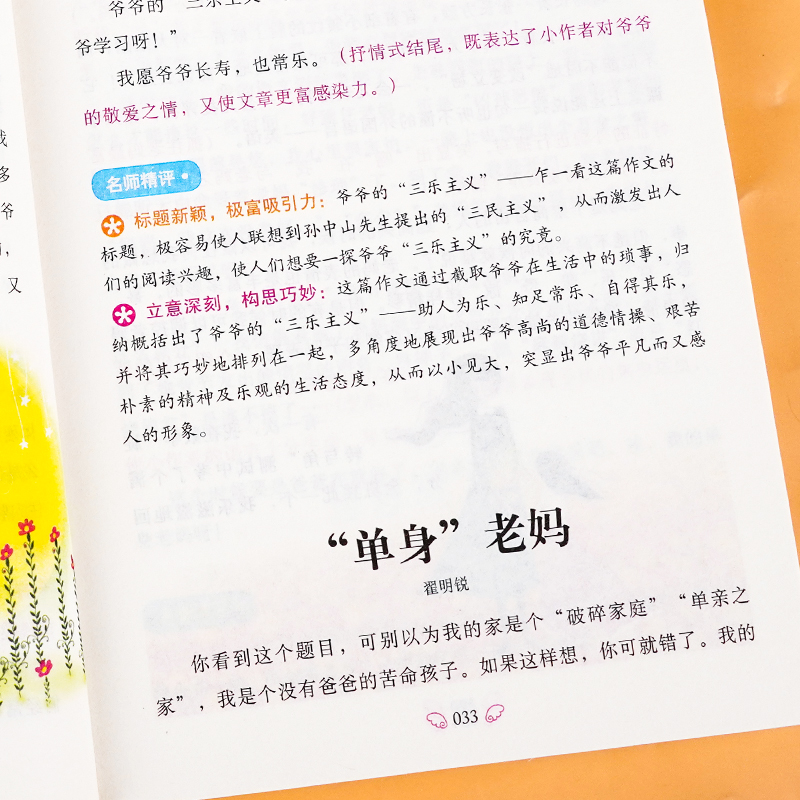 爷爷的“三乐主义”
爷学习呀！”
我愿爷爷长寿，也常乐。（抒情式结尾，既表达了小作者对爷爷
的敬爱之情，又使文章更富感染力。）
名师精评
标题新颖，极富吸引力：爷爷的“三乐主义”——乍一看这篇作文的
标题，极容易使人联想到孙中山先生提出的“三民主义”，从而激发出人
们的阅读兴趣，使人们想要一探爷爷“三乐主义”的究竟。
立意深刻，构思巧妙：这篇作文通过截取爷爷在生活中的琐事，归
纳概括出了爷爷的“三乐主义”——助人为乐、知足常乐、自得其乐，
并将其巧妙地排列在一起，多角度地展现出爷爷高尚的道德情操、艰苦
朴素的精神及乐观的生活态度，从而以小见大，突显出爷爷平凡而又感
人的形象。
“单身”老妈
翟明锐
你看到这个题目，可别以为我的家是个“破碎家庭”“单亲之
家”，我是个没有爸爸的苦命孩子。如果这样想，你可就错了。我的
033
多
爷
又